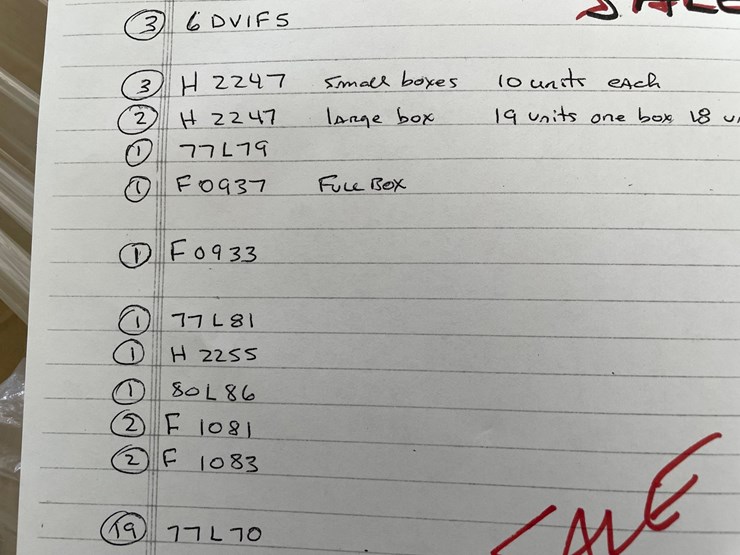 SALE
3 6 DVIF5
3 H 2247 small boxes 10 units each
2 H 2247 large box 19 units one box 18
1 77L79
1 F0937 Full Box
1 F0933
1 77L81
1 H 2255
1 80L86
2 F 1081
2 F 1083
19 77L70
SALE